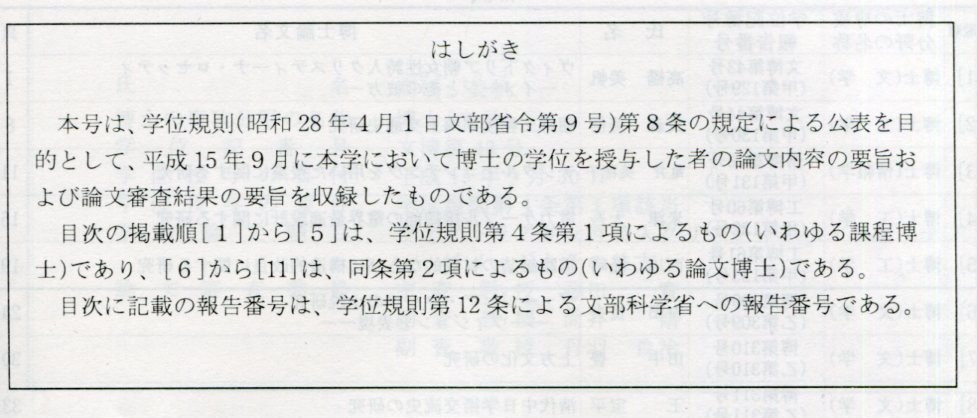 はしがき
本号は、学位規則(昭和28年4月1日文部省令第9号)第8条の規定による公表を目
的として、平成15年9月に本学において博士の学位を授与した者の論文内容の要旨お
よび論文審査結果の要旨を収録したものである。
目次の掲載順[1]から[5]は、学位規則第4条第1項によるもの(いわゆる課程博
士)であり、[6]から[11]は、同条第2項によるもの(いわゆる論文博士)である。
目次に記載の報告番号は、学位規則第12条による文部科学省への報告番号である。